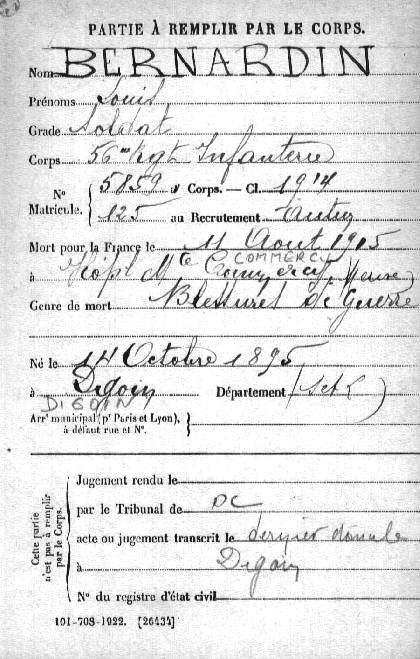 PARTIE À REMPLIR PAR LE CORPS.
Nom BERNARDIN
Prénoms Louis
Grade Soldat
Corps 56me Rgt Infanterie
N° Matricule. { 5859 au Corps. — Cl. 1914
125 au Recrutement Autun
Mort pour la France le 11 Aout 1915
COMMERCY
à Hôpl Mte Commercy, Meuse
Genre de mort Blessures de Guerre
Né le 14 Octobre 1895
à Digoin Département (S et L)
DIGOIN
Arrt municipal (pr Paris et Lyon), à défaut rue et N°.
Cette partie n'est pas à remplir par le Corps.
Jugement rendu le
par le Tribunal de DC
acte ou jugement transcrit le dernier domicile
à Digoin
N° du registre d'état civil
101-708-1922. [26434]